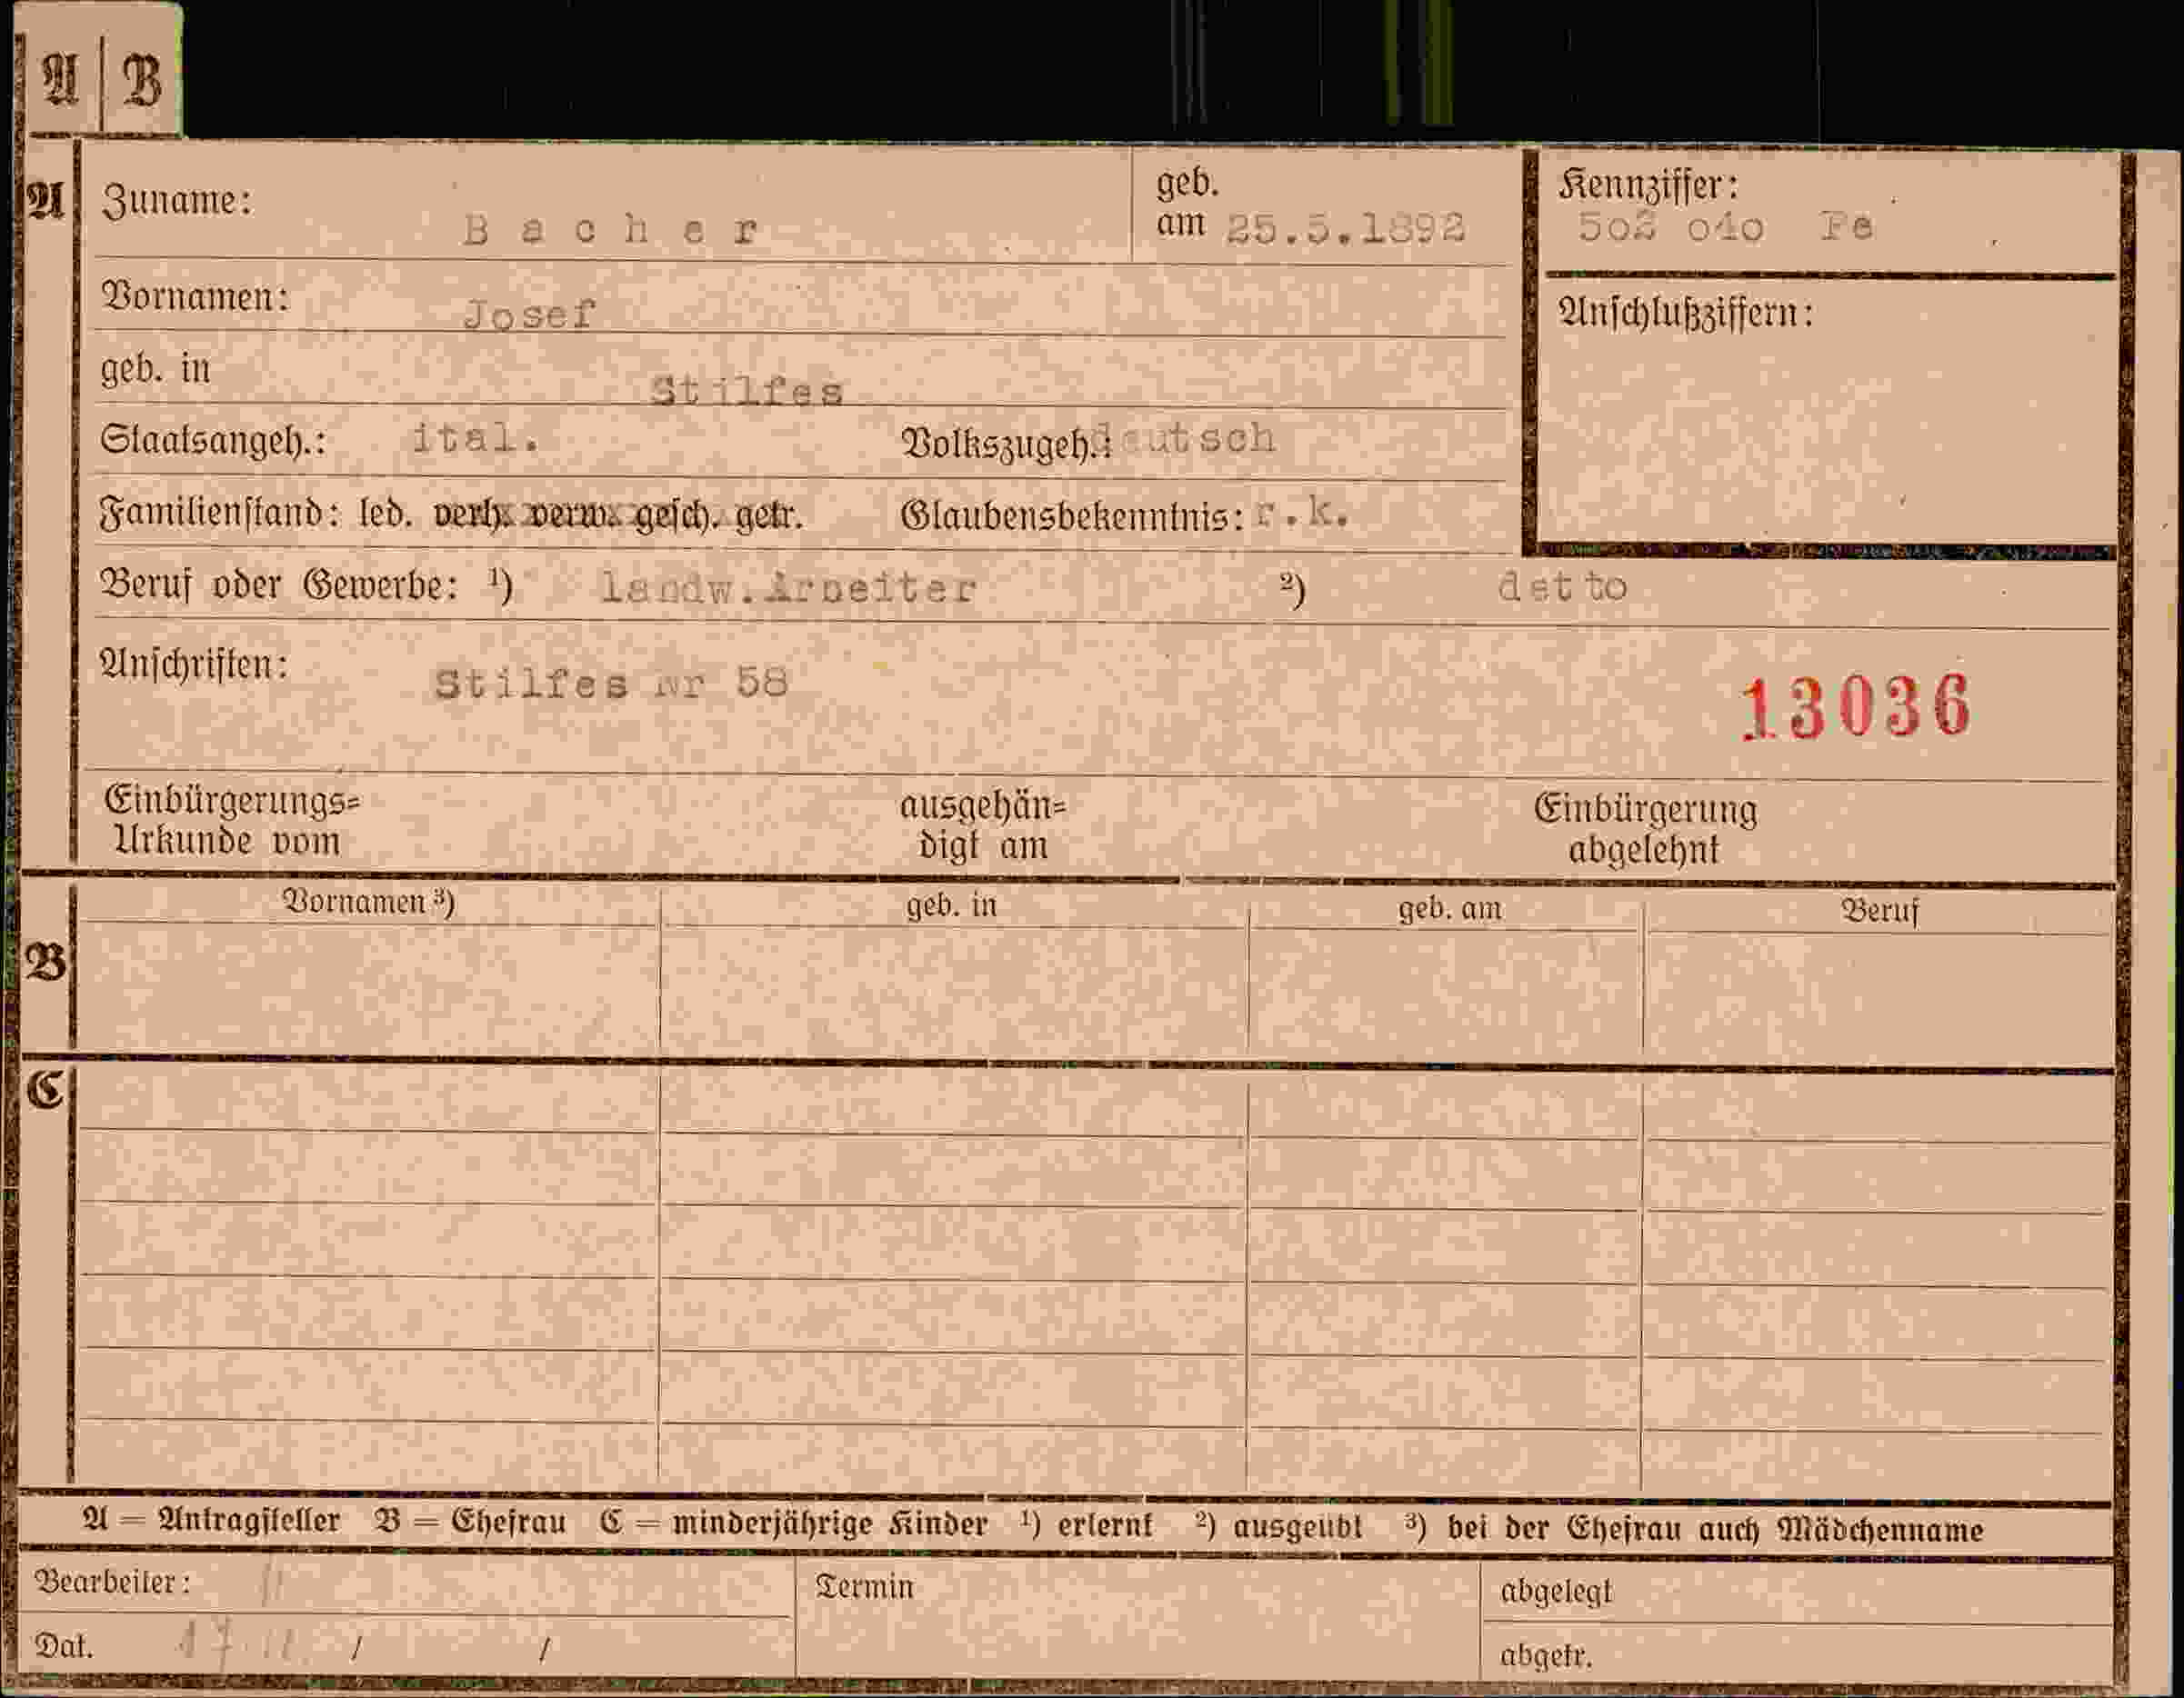 A | B
A Zuname: Bacher geb. am 25.5.1892
Kennziffer: 502 040 Fe
Vornamen: Josef
Anschlußziffern:
geb. in Stilfes
Staatsangeh.: ital. Volkszugeh.: deutsch
Familienstand: led. verh. verw. gesch. getr. Glaubensbekenntnis: r.k.
Beruf oder Gewerbe: ¹) landw.Arbeiter ²) detto
Anschriften: Stilfes Nr 58
13036
Einbürgerungs= ausgehän= Einbürgerung
Urkunde vom digt am abgelehnt
Vornamen ³) geb. in geb. am Beruf
B
C
A = Antragsteller B = Ehefrau C = minderjährige Kinder ¹) erlernt ²) ausgeübt ³) bei der Ehefrau auch Mädchenname
Bearbeiter: Termin abgelegt
Dat. 17.11. / / abgetr.